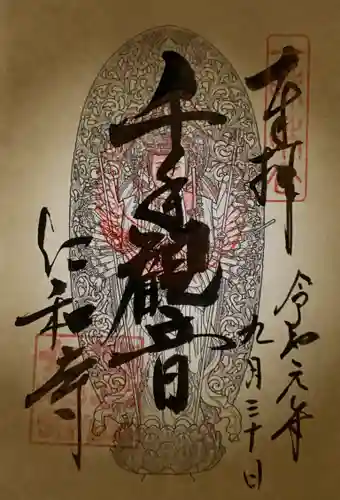 奉拝
令和元年
九月三十日
千手観音
仁和寺